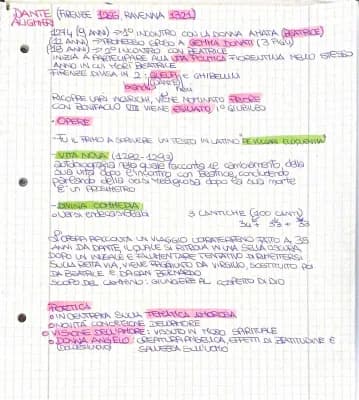 DANTE (FIRENZE 1265, RAVENNA 1321)
ALIGHIERI
1274 (9 ANNI) → 1° INCONTRO CON LA DONNA AMATA (BEATRICE)
(12 ANNI) → PROMESSO SPOSO A GEMMA DONATI (3 FIGLI)
(18 ANNI) → 2° INCONTRO CON BEATRICE
INIZIA A PARTECIPARE ALLA VITA POLITICA FIORENTINA NELLO STESSO
ANNO IN CUI MORÌ BEATRICE
FIRENZE DIVISA IN 2: GUELFI E GHIBELLINI
(DANTE)
bianchi neri
RICOPRE VARI INCARICHI, VIENE NOMINATO PRIORE
CON BONIFACIO VIII VIENE ESILIATO 1° GIUBILEO
• OPERE
- FU IL PRIMO A SCRIVERE UN TESTO IN LATINO "DE VULGARI ELOQUENTIA"
- VITA NOVA (1292-1293)
autobiografia nella quale racconta il cambiamento della
sua vita dopo l'incontro con Beatrice, concludendo
parlando della crisi religiosa dopo la sua morte
È UN PROSIMETRO
- DIVINA COMMEDIA
o versi endecasillabi 3 CANTICHE (100 CANTI)
34 + 33 + 33
L'OPERA RACCONTA UN VIAGGIO ULTRATERRENO FATTO A 35
ANNI DA DANTE, IL QUALE SI RITROVA IN UNA SELVA OSCURA,
DOPO UN INIZIALE E FALLIMENTARE TENTATIVO DI RIMETTERSI
SULLA RETTA VIA, VIENE RAGGIUNTO DA VIRGILIO, SOSTITUITO POI
DA BEATRICE E DA SAN BERNARDO
SCOPO DEL CAMMINO: GIUNGERE AL COSPETTO DI DIO
POETICA
o INCENTRATA SULLA TEMATICA AMOROSA
o NOVITÀ CONCEZIONE DELL'AMORE
o VISIONE DELL'AMORE: VISSUTO IN MODO SPIRITUALE
o DONNA ANGELO: CREATURA ANGELICA, EFFETTI DI BEATITUDINE E
(DOLCE STILNOVO) SALVEZZA SULL'UOMO